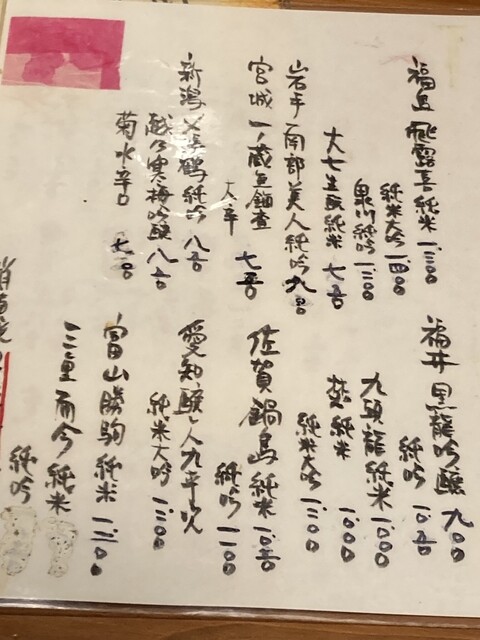 福島 飛露喜 純米 一、二〇〇
純米大吟 一、四〇〇
泉川純吟 一、二〇〇
大七生酛純米 七五〇
岩手 南部美人純吟 九五〇
宮城 一ノ蔵無鑑査
大辛 七五〇
新潟 〆張鶴純吟 八五〇
越乃寒梅吟醸 八五〇
菊水辛口 七五〇
福井 黒龍吟醸 九〇〇
純吟
九頭龍純米 一、〇〇〇
純米 一、〇〇〇
純米大吟
佐賀 鍋島 純米
純吟 一、一〇〇
愛知 醸し人九平次
純米大吟
富山 勝駒 純米
三重 而今 純米
純吟